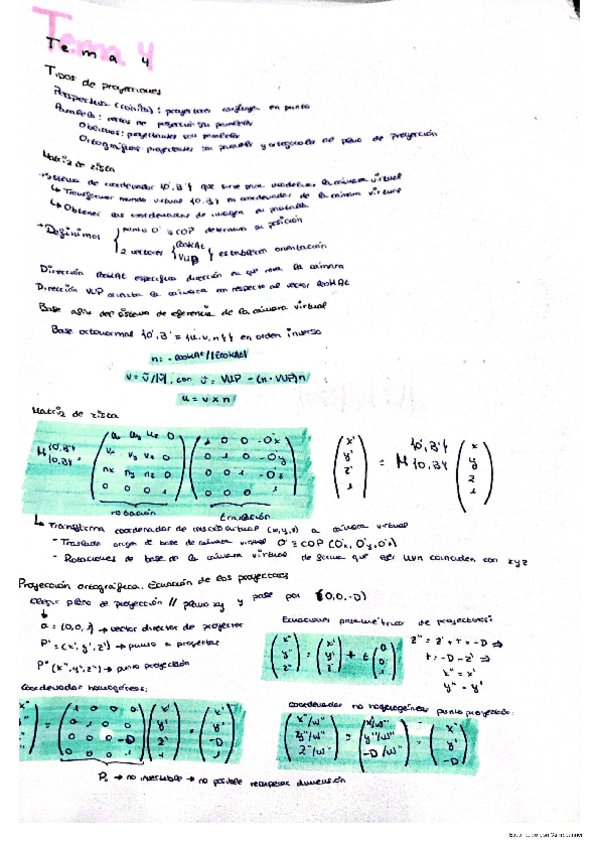 Tema 4
Tema 4
Tipos de proyecciones
Perspectiva (cónica): proyectores confluyen en punto
Paralela: rectas de proyección son paralelas
Oblicuas: proyectantes son paralelas
Ortográficas: proyectantes son paralelas y ortogonales al plano de proyección
Matriz de vista
Sistema de coordenadas {O',B'} que sirve para modelizar la cámara virtual
↳ Transformar mundo virtual {O,B} en coordenadas de la cámara virtual
↳ Obtener las coordenadas de imagen en pantalla
→ Definimos { punto O' ≡ COP determina su posición
2 vectores { lookAt VUP } establecen orientación
Dirección lookAt especifica dirección en que mira la cámara
Dirección VUP orienta la cámara con respecto al vector lookAt
Base afín del sistema de referencia de la cámara virtual
Base ortonormal {O',B' = {u,v,n}} en orden inverso
n = -lookAt/|lookAt|
v = ṽ/|ṽ|, con ṽ = VUP - (n·VUP)n
u = v x n
Matriz de vista
M {O,B'} {O,B}
ux uy uz 0   1 0 0 -O'x   x'   x
vx vy vz 0   0 1 0 -O'y   y' = M {O',B'} {O,B} y
nx ny nz 0   0 0 1 -O'z   z'   z
0 0 0 1   0 0 0 1   1   1
rotación   traslación
↳ Transforma coordenadas de mundo virtual (x,y,z) a cámara virtual
- Traslada origen de base de cámara virtual O' ≡ COP (O'x, O'y, O'z)
- Rotaciones de base de la cámara virtual de forma que ejes uvn coincidan con xyz
Proyección ortográfica. Ecuación de los proyectores
Elegir plano de proyección // plano xy y pase por (0,0,-D)
a = (0,0,1) → vector director de proyector
P' = (x',y',z') → punto a proyectar
P'' (x'',y'',z'') → punto proyectado
Ecuaciones paramétricas de proyectores:
x''   x'   0
y'' = y' + t 0
z''   z'   1
z'' = z' + t = -D ⇒
t = -D - z' ⇒
x'' = x'
y'' = y'
Coordenadas homogéneas:
x''   1 0 0 0   x'   x'
0 1 0 0   y' = y'
0 0 0 -D   z'   -D
0 0 0 1   1   1
P₀ → no invertible → no posible recuperar dimensión
Coordenadas no homogéneas punto proyectado:
x''/w''   x'/w''   x'
y''/w'' = y''/w'' = y'
z''/w''   -D/w''   -D